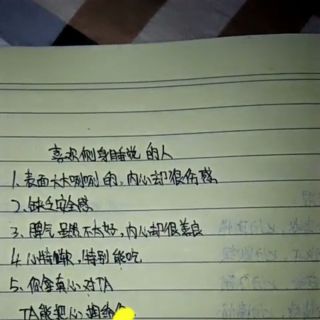 喜欢侧身睡觉的人
1、表面大大咧咧的，内心却很伤感
2、缺乏安全感
3、脾气虽然不太好，内心却很善良
4、心特软，特别能吃
5、你拿真心对TA
TA能把心掏给